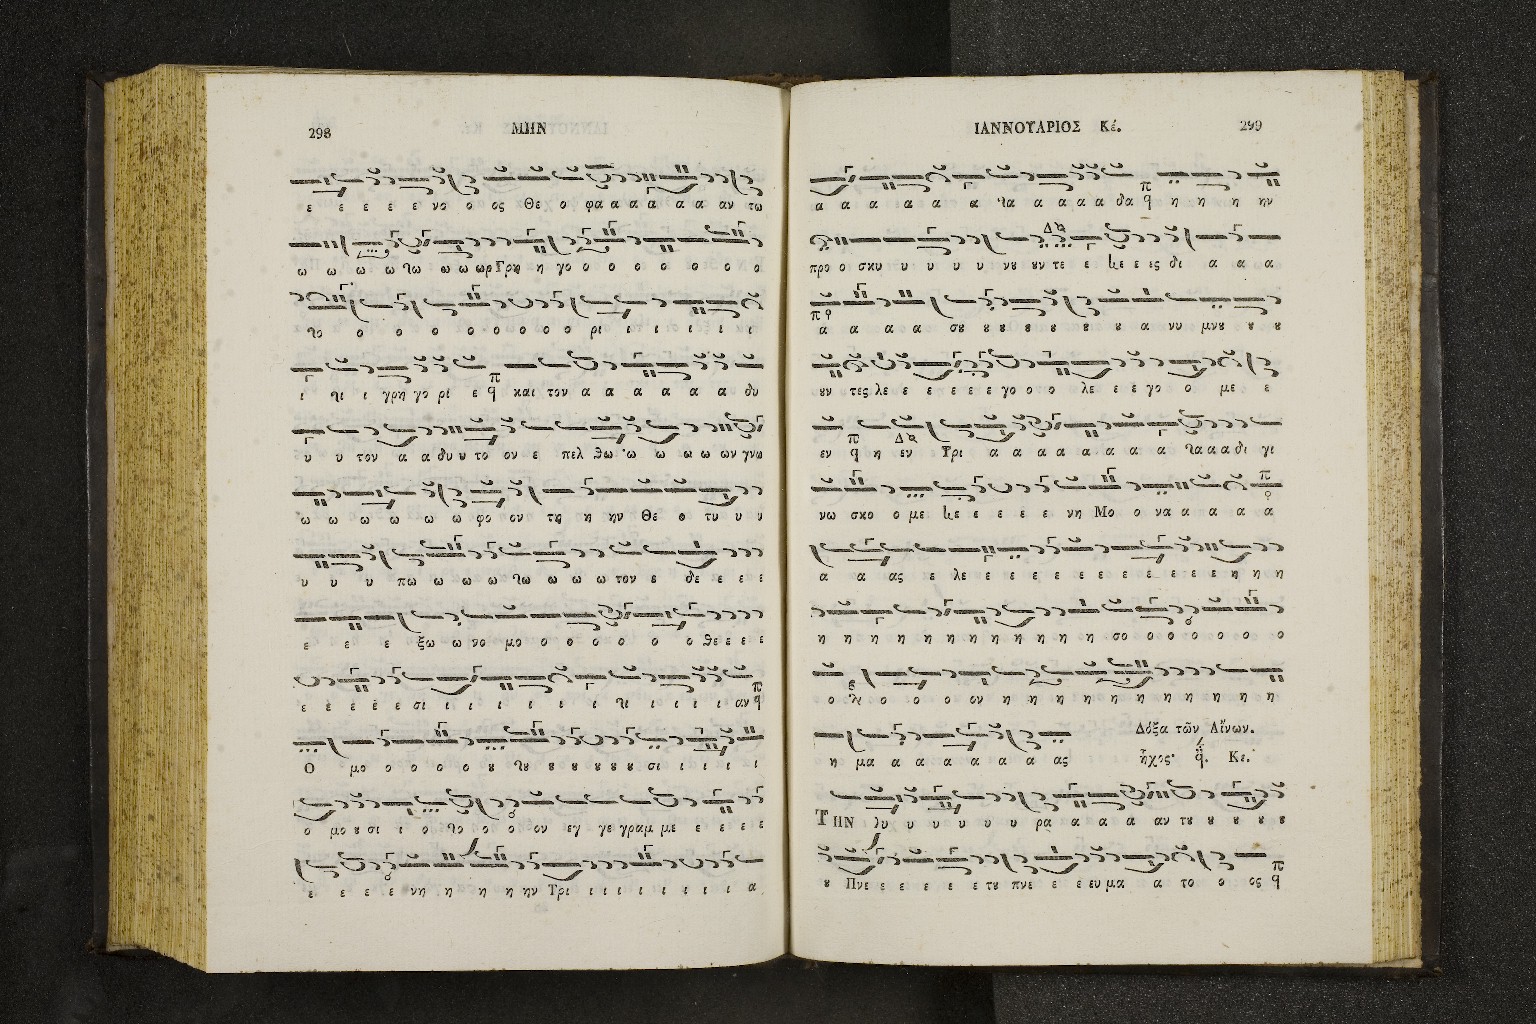 298 ΜΗΝ
ε ε ε ε ε νο ο ος Θε ο φα α α α α α αν τω
ω ω ω ω ω ω ω ωρ Γρη η γο ο ο ο ο ο ο ο ο
ο ο ο ο ο ο ο ο ο ρι ι ι ι ι ι ι
ι ι γρη γο ρι ε και τον α α α α α α δυ
υ υ τον α α δυ υ το ον ε πελ θω ω ω ω ω ων γνω
ω ω ω ω ω ω φο ον τη η ην Θε ο τυ υ υ
υ υ υ πω ω ω ω ω ω ω τον ε δε ε ε ε
ε ε ε ξω ω νο μο ο ο ο ο ο ο θε ε ε ε
ε ε ε ε ε σι ι ι ι ι ι ι ι ι ι ι αν
Ο μο ο ο ο ο ȣ ȣ ȣ ȣ ȣ ȣ ȣ σι ι ι ι ι
ο μο ȣ σι ι ο ο ο ο ον εγ γε γραμ με ε ε ε ε
ε ε ε ε νη η η η ην Τρι ι ι ι ι ι ι ι α
ΙΑΝΝΟΥΑΡΙΟΣ Κέ. 299
α α α α α α α α α α α δα η η η ην
προ ο σκυ υ υ υ υ νȣ ȣν τε ε ε ε εις δι α α α
α α α α σȣ ȣ ȣ ȣ ȣ ȣ ȣ α νυ μνȣ ȣ ȣ
ȣν τες λε ε ε ε ε ε γο ο ο λε ε ε γο ο με ε
εν η εν Τρι α α α α α α α α α α δι γι
νω σκο ο με ε ε ε ε ε νη Μο ο να α α α α
α α ας ε λε ε ε ε ε ε ε ε ε ε ε η η η
η η η η η η η η η η η σο ο ο ο ο ο ο
ο ο ο ο ον η η η η η η η η η η η
η μα α α α α α α ας Δόξα τῶν Αἴνων.
ἦχος Κε.
ΤΗΝ λυ υ υ υ υ υ ρα α α α αν τȣ ȣ ȣ ȣ ȣ
ȣ Πνε ε ε ε ε ε τȣ πνε ε ε ευ μα α το ο ος